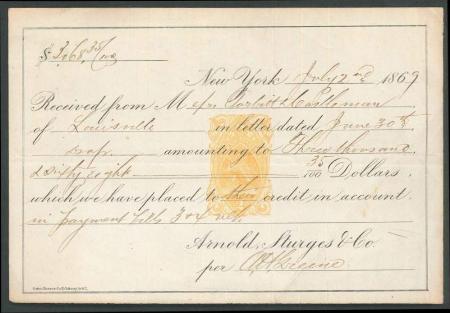 $3,068 35/100
New York July 2nd 1869
Received from Messrs Torbitt & Castleman
of Louisville in letter dated June 30th
amounting to Three thousand
& Sixty eight 35/100 Dollars,
which we have placed to their credit in account
in payment bills 3
Arnold, Sturges & Co.
per